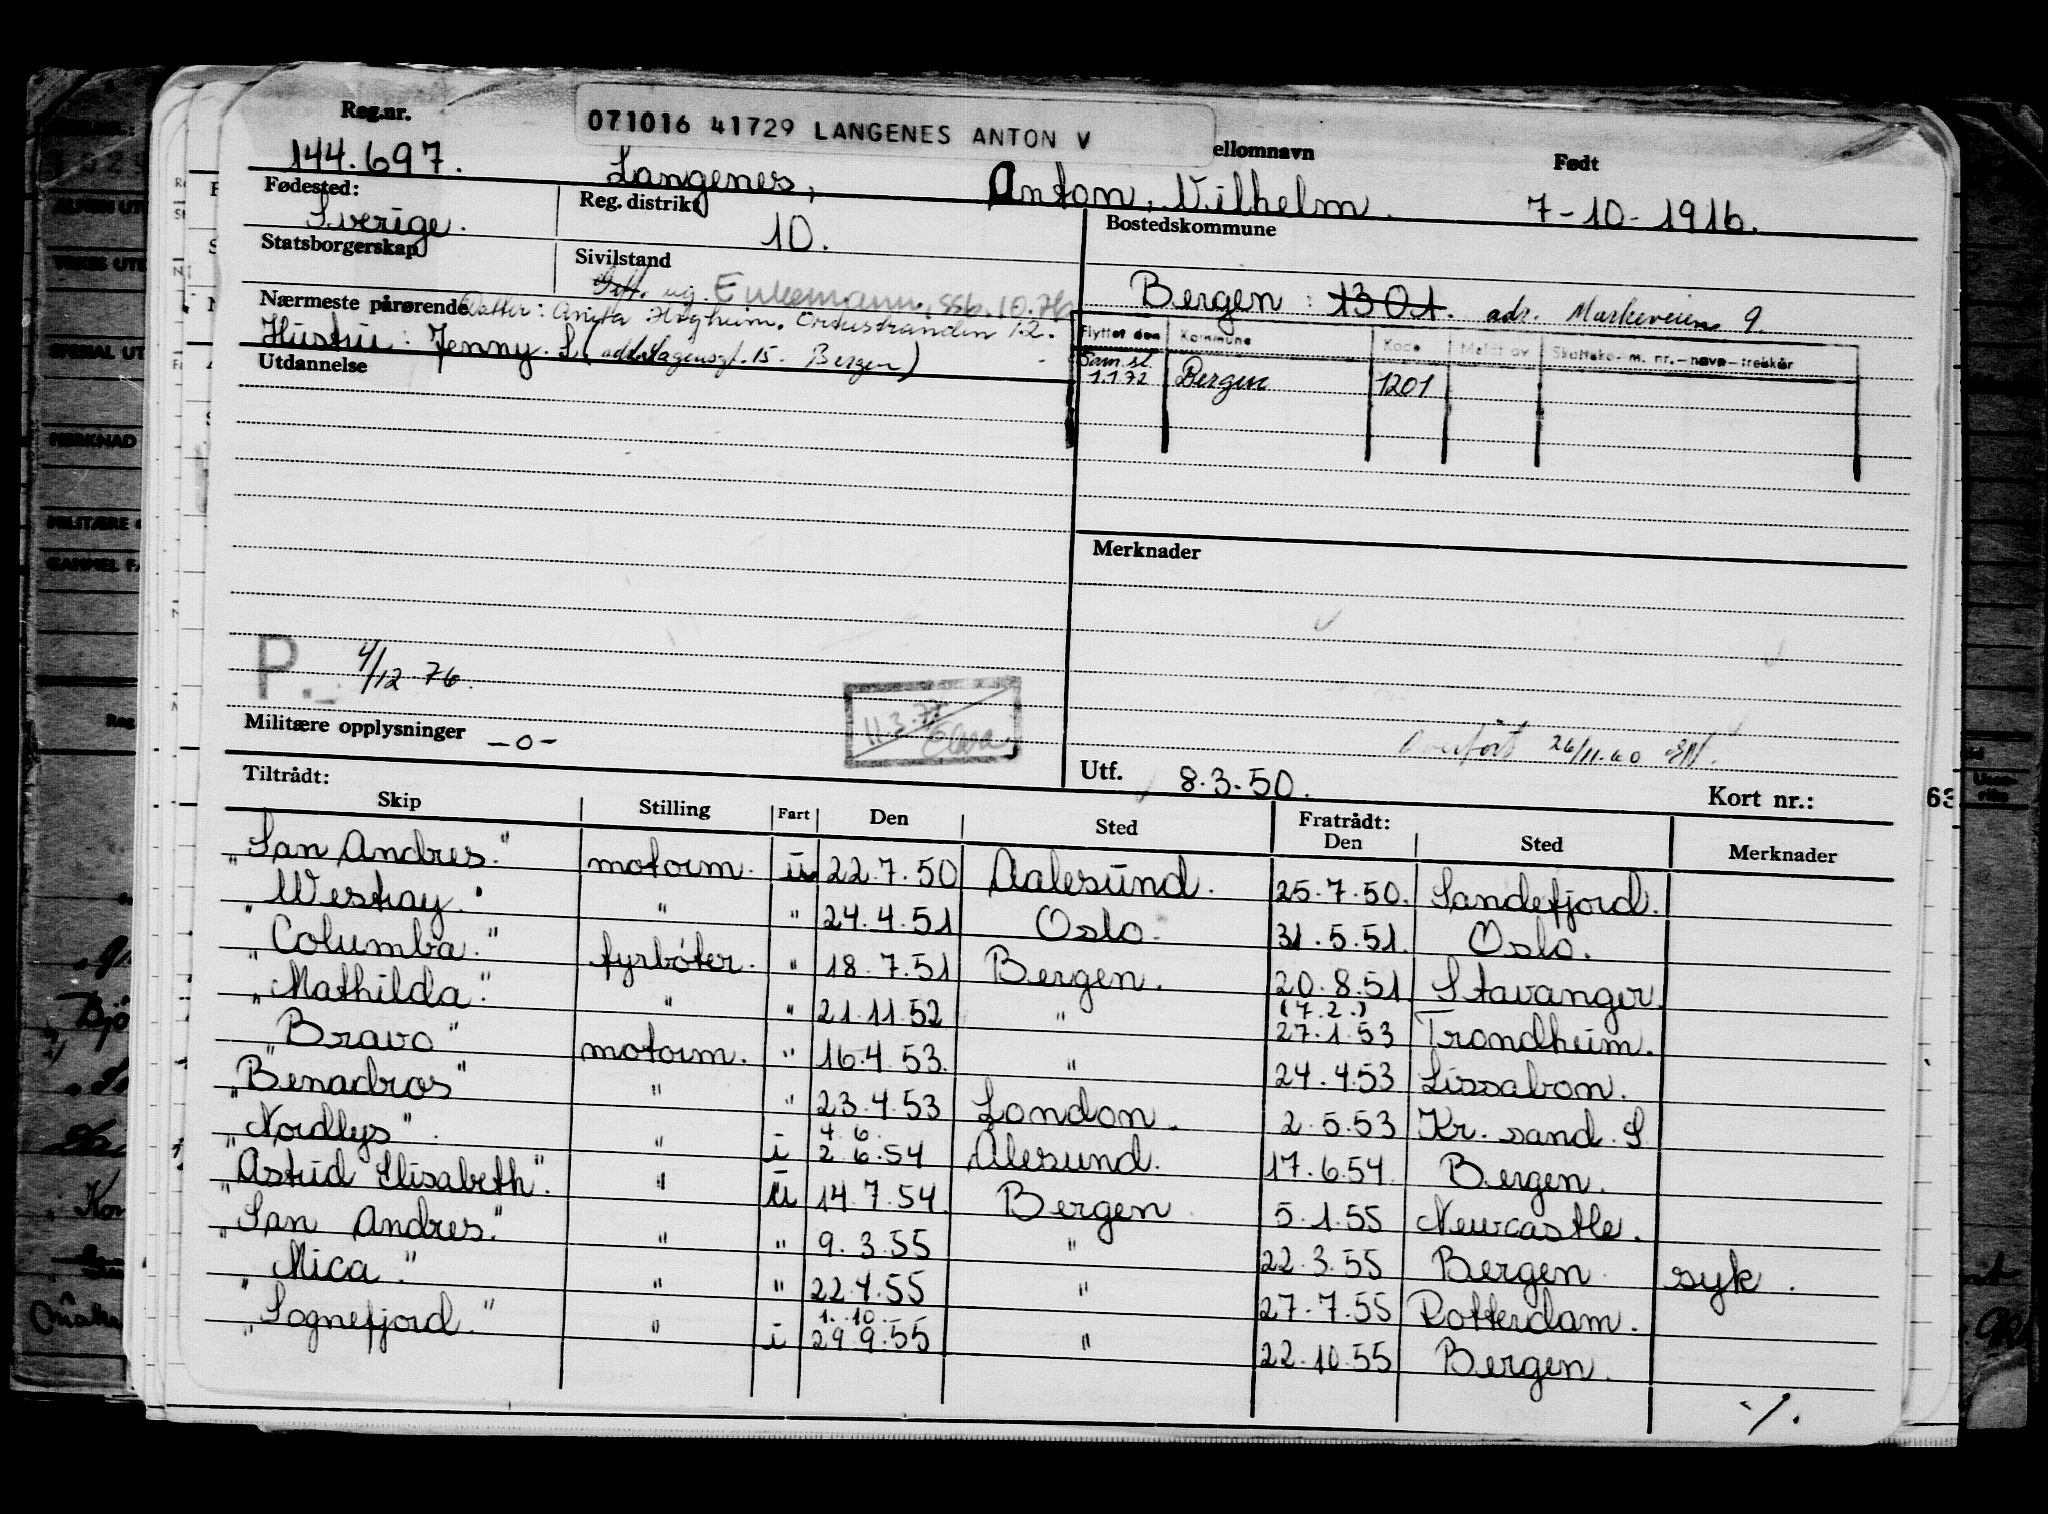 071016 41729 LANGENES ANTON V
Reg.nr. ellomnavn Født
144.697. Langenes, Anton, Vilhelm. 7-10-1916.
Fødested: Reg. distrikt Bostedskommune
Sverige. 10.
Statsborgerskap Sivilstand
ug. Enkemann, SSB. 10.76 Bergen: 1301. adr. Markeveien 9
Nærmeste pårørende Datter: Anita 12.
Hustru: Jenny. L (adr. 15. Bergen)
Flyttet den Kommune Kode Meldt av Skatteko- m. nr.-navn-trekkår
Sam.sl. 1.1.72 Bergen 1201
Utdannelse
Merknader
P. 4/12-76.
11.3.77
Overført 26/11.60
Militære opplysninger -o-
Utf. 8.3.50. Kort nr.: 63
Tiltrådt: Fratrådt:
Skip Stilling Fart Den Sted Den Sted Merknader
"San Andres." motorm. u 22.7.50 Aalesund. 25.7.50. Sandefjord.
"Westray." " " 24.4.51 Oslo. 31.5.51. Oslo.
"Columba." fyrbøter. " 18.7.51 Bergen. 20.8.51 Stavanger.
"Mathilda." " " 21.11.52 " (7.2.) 27.1.53 Trondheim.
"Bravo" motorm. " 16.4.53. " 24.4.53 Lissabon.
"Benadros" " " 23.4.53 London. 2.5.53 Kr. sand. S
"Nordlys". " i 4.6. 2.6.54 Ålesund. 17.6.54. Bergen.
"Astrid Elisabeth". " u 14.7.54. Bergen 5.1.55 Newcastle.
"San Andres." " " 9.3.55 " 22.3.55 Bergen syk.
"Mica." " " 22.4.55 " 27.7.55 Rotterdam.
"Sognefjord." " i 1.10. 29.9.55 " 22.10.55 Bergen.
./.